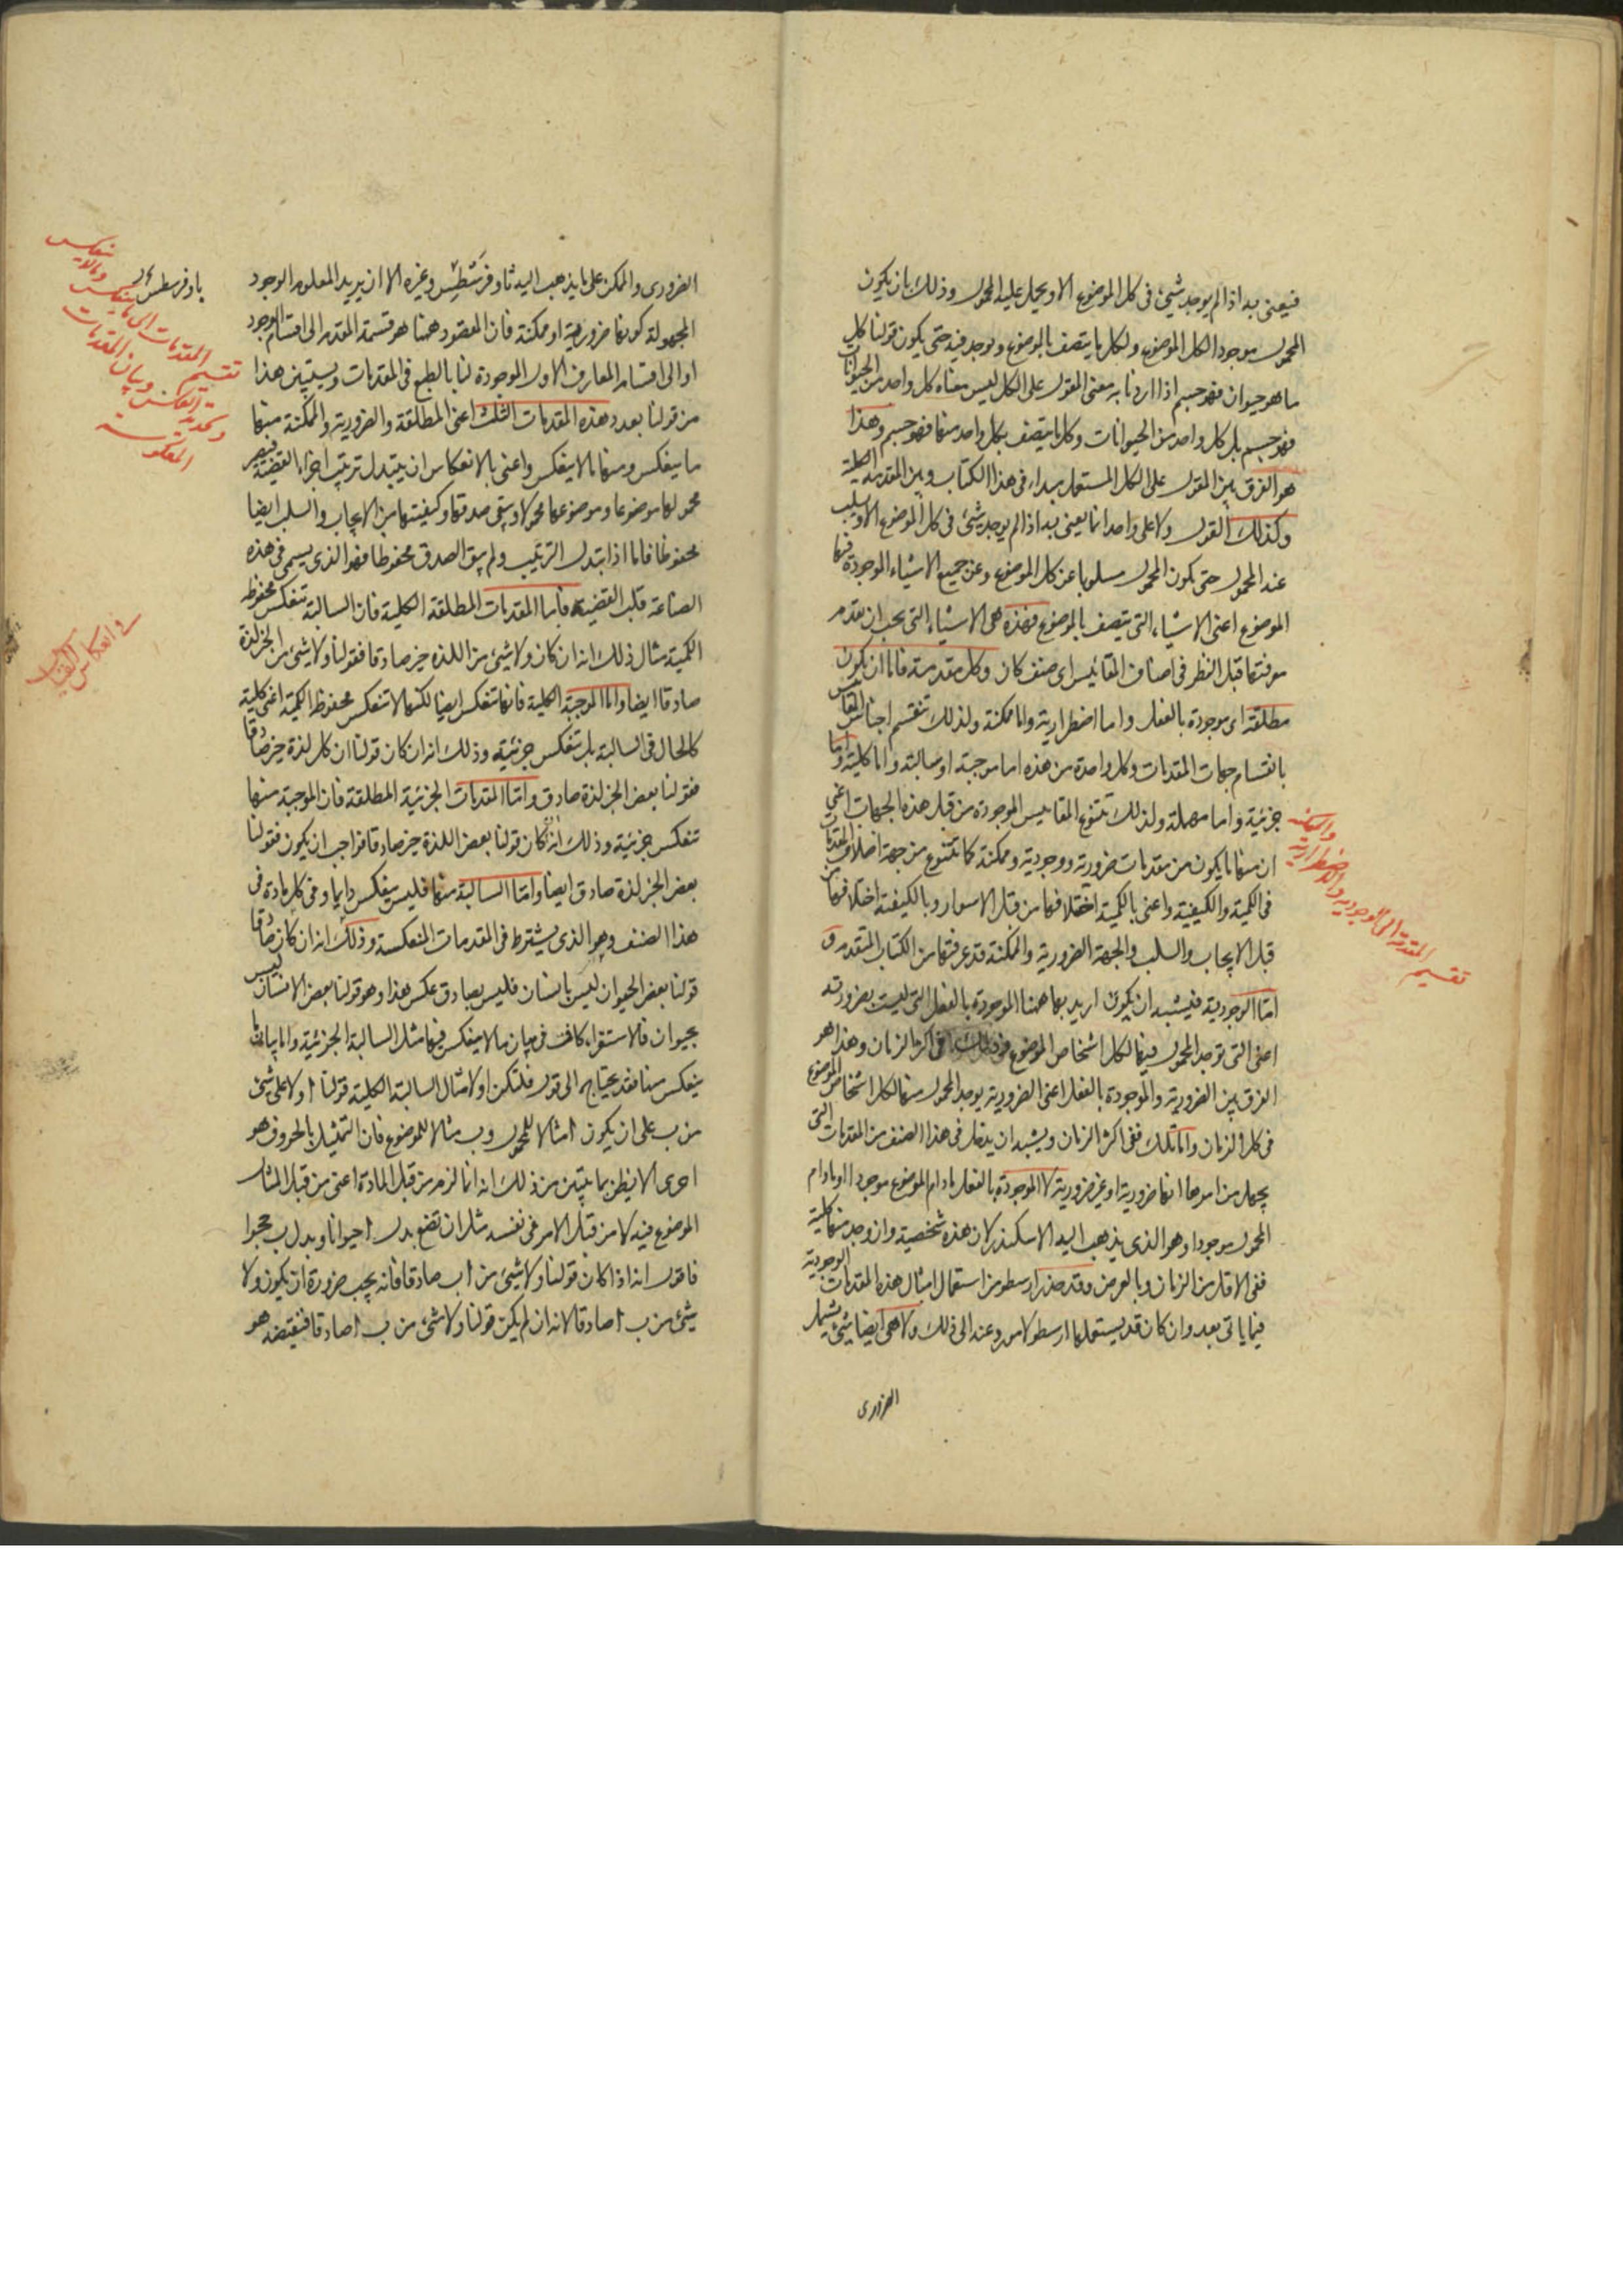 فيعنى به اذا لم يوجد شيئ فى كل الموضوع الا ويحمل عليه المحمول وذلك بان يكون
المحمول موجودا لكل الموضوع ولكل ما يتصف بالموضوع ويوجد فيه حتى يكون قولنا كل
ما هو حيوان فهو جسم اذا اردنا به معنى المقول على الكل ليس معناه كل واحد من الحيوانات
فهو جسم بل كل واحد من الحيوانات وكل ما يتصف بكل واحد منها فهو جسم وهذا
هو الفرق بين المقول على الكل المستعمل مبداء فى هذا الكتاب وبين المقدمة الكلية
وكذلك القول ولا على واحد انما يعنى به اذا لم يوجد شيئ فى كل الموضوع الا ويسلب
عنه المحمول حتى يكون المحمول مسلوبا عن كل الموضوع وعن جميع الاشياء الموجودة فيها
الموضوع اعنى الاشياء التى يتصف بالموضوع فهذه هى الاشياء التى يجب ان تقدم
معرفتها قبل النظر فى اصناف المقائيس اى صنف كان وكل مقدمة فاما ان يكون
مطلقة اى موجودة بالفعل واما اضطرارية واما ممكنة ولذلك تنقسم اجناس المقاييس
بانقسام جهات المقدمات وكل واحدة من هذه اما موجبة او سالبة واما كلية واما
جزئية واما مهملة ولذلك تتنوع المقاييس الموجودة من قبل هذه الجهات اعنى
ان منها ما يكون من مقدمات ضرورية ووجودية وممكنة كما تتنوع من جهة اختلاف المقدمات
فى الكمية والكيفية واعنى بالكمية اختلافها من قبل الاسوار وبالكيفية اختلافها من
قبل الايجاب والسلب والجهة الضرورية والممكنة قد عرفتها من الكتاب المتقدم و
اما الوجودية فيشبه ان يكون اريد بها ههنا الموجودة بالفعل التى ليست بضرورية
اعنى التى توجد المحمول فيها لكل اشخاص الموضوع فى اكثر الزمان وهذا هو
الفرق بين الضرورية والموجودة بالفعل اعنى الضرورية يوجد المحمول منها لكل اشخاص الموضوع
فى كل الزمان واما تلك ففى اكثر الزمان ويشبه ان يدخل فى هذا الصنف من المقدمات التى
يجهل من امرها انها ضرورية او غير ضرورية لا الموجودة بالفعل ما دام الموضوع موجودا او ما دام
المحمول موجودا وهو الذى يذهب اليه الاسكندر لان هذه شخصية وان وجد منها كلية
ففى الاقل من الزمان وبالعرض وقد حذر ارسطو من استعمال امثال هذه المقدمات الوجودية
فيما ياتى بعد وان كان قد يستعملها ارسطو لامر دعته الى ذلك ولا هى ايضا شيئ يشمل
تقسيم المقدمة الى الوجودية والاضطرارية والممكنة
الضرورى والممكن على ما يذهب اليه ثاوفرسطيس وغيره الا ان يريد المعلومة الوجود
المجهولة كونها ضرورية او ممكنة فان المقصود ههنا هو قسمة المقدم الى اقسام الوجود
او الى اقسام المعارف الاول الموجودة لنا بالطبع فى المقدمات وسيتبين هذا
من قولنا بعد وهذه المقدمات الثلث اعنى المطلقة والضرورية والممكنة منها
ما ينعكس ومنها ما لا ينعكس واعنى بالانعكاس ان يتبدل ترتيب اجزاء القضية فيصير
محمولها موضوعا وموضوعها محمولا ويبقى صدقها وكيفيتها من الايجاب والسلب ايضا
محفوظا فاما اذا تبدل الترتيب ولم يبق الصدق محفوظا فهو الذى يسمى فى هذه
الصناعة قلب القضية فاما المقدمات المطلقة الكلية فان السالبة تنعكس محفوظة
الكمية مثال ذلك انه ان كان ولا شيئ من اللذه خير صادقا فقولنا ولا شيئ من الخير لذة
صادقا ايضا واما الموجبة الكلية فانها تنعكس ايضا لكنها لا تنعكس محفوظ الكمية اعنى كلية
كالحال فى السالبة بل تنعكس جزئية وذلك انه ان كان قولنا ان كل لذة خير صادقا
فقولنا بعض الخير لذة صادق واما المقدمات الجزئية المطلقة فان الموجبة منها
تنعكس جزئية وذلك انه ان كان قولنا بعض اللذة خير صادقا فواجب ان يكون فقولنا
بعض الخير لذة صادق ايضا واما السالبة منها فليس ينعكس دايما وفى كل مادة فى
هذا الصنف وهو الذى يشترط فى المقدمات المنعكسة وذلك انه ان كان صادقا
قولنا بعض الحيوان ليس بانسان فليس بصادق عكس هذا وهو قولنا بعض الانسان ليس
بحيوان فالاستقراء كاف فى بيان ما لا ينعكس فيها مثل السالبة الجزئية واما بيان ما
ينعكس منها فقد يحتاج الى قول فلتكن اولا مثال السالبة الكلية قولنا ا ولا على شيئ
من ب على ان يكون ا مثالا للمحمول وب مثالا للموضوع فان التمثيل بالحروف هو
احرى الا يظن بما يتبين من ذلك انه انما لزم من قبل المادة اعنى من قبل المثال
الموضوع فيه لا من قبل الامر فى نفسه مثل ان تضع بدل ا حيوانا وبدل ب حجرا
فاقول انه اذا كان قولنا ولا شيئ من ا ب صادقا فانه يجب ضرورة ان يكون ولا
شيئ من ب ا صادقا لانه ان لم يكن قولنا ولا شيئ من ب ا صادقا فنقيضه هو
تقسيم المقدمات الى ما ينعكس وما لا ينعكس
وتحديد العكس وبيان المقدمات
المعكوسة